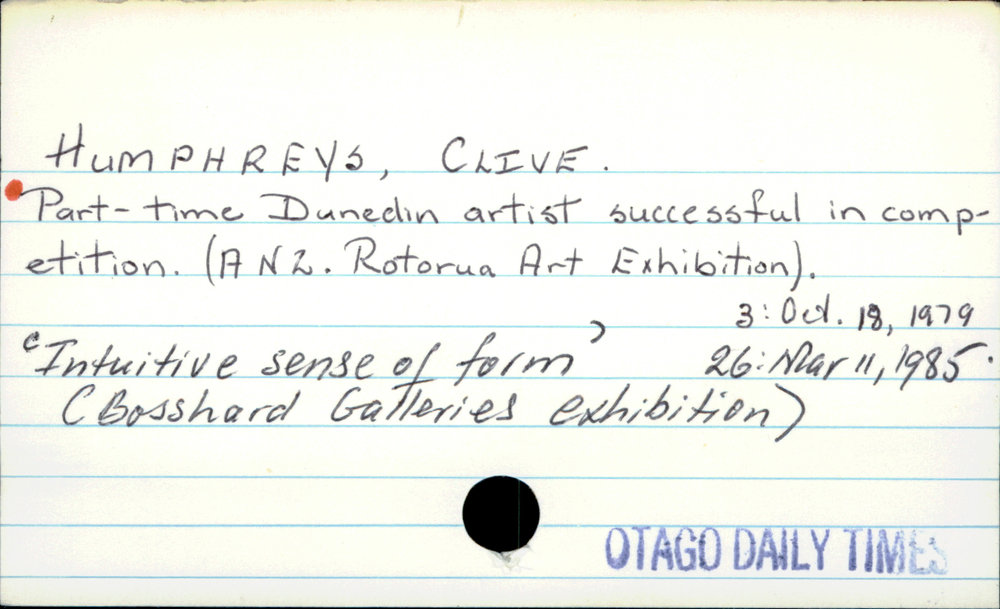 HUMPHREYS, CLIVE.
Part-time Dunedin artist successful in comp-
etition. (ANZ. Rotorua Art Exhibition).
3: Oct. 18, 1979
'Intuitive sense of form' 26: Mar 11, 1985.
(Bosshard Galleries exhibition)
OTAGO DAILY TIMES